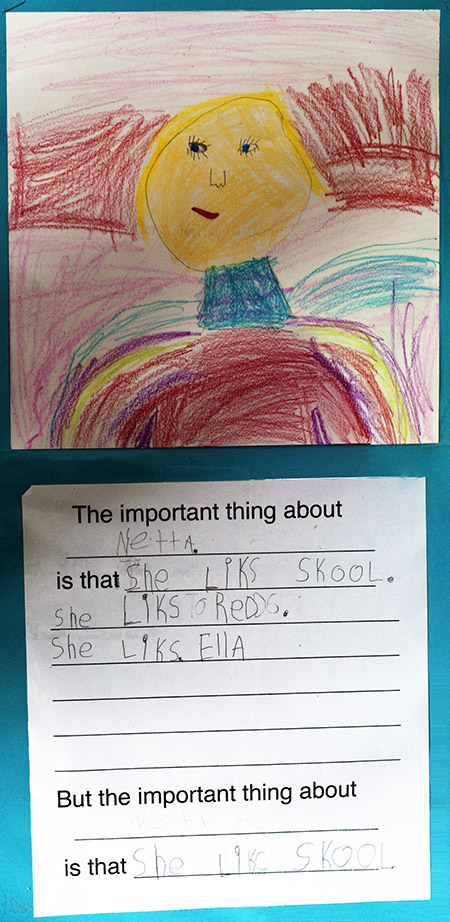 The important thing about
Neitta.
is that She LIKS SKOOL.
She LIKS TO ReDDG.
She LIKS. EllA
But the important thing about
Neitta
is that She LIKC SKOOL